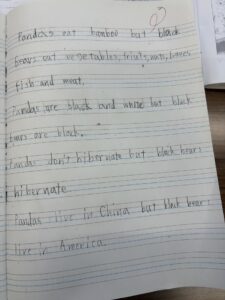 Pandas eat bamboo but black
bears eat vegetables, fruits, nuts,
fish and meat.
Pandas are black and white but black
bears are black.
Pandas don't hibernate but black bears
hibernate
Pandas live in China but black bears
live in America.